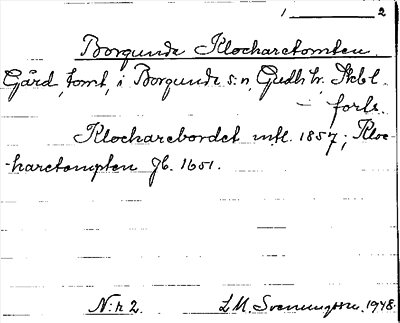 1 — 2
Borgunda Klockaretomten.
Gård, tomt, i Borgunda s:n, Gudh. hr, Skbl.
— forts.
Klockarebordet mtl. 1857; Kloc-
karetompten Jb. 1651.
N:r 2. L.M. Svenungsson. 1948.